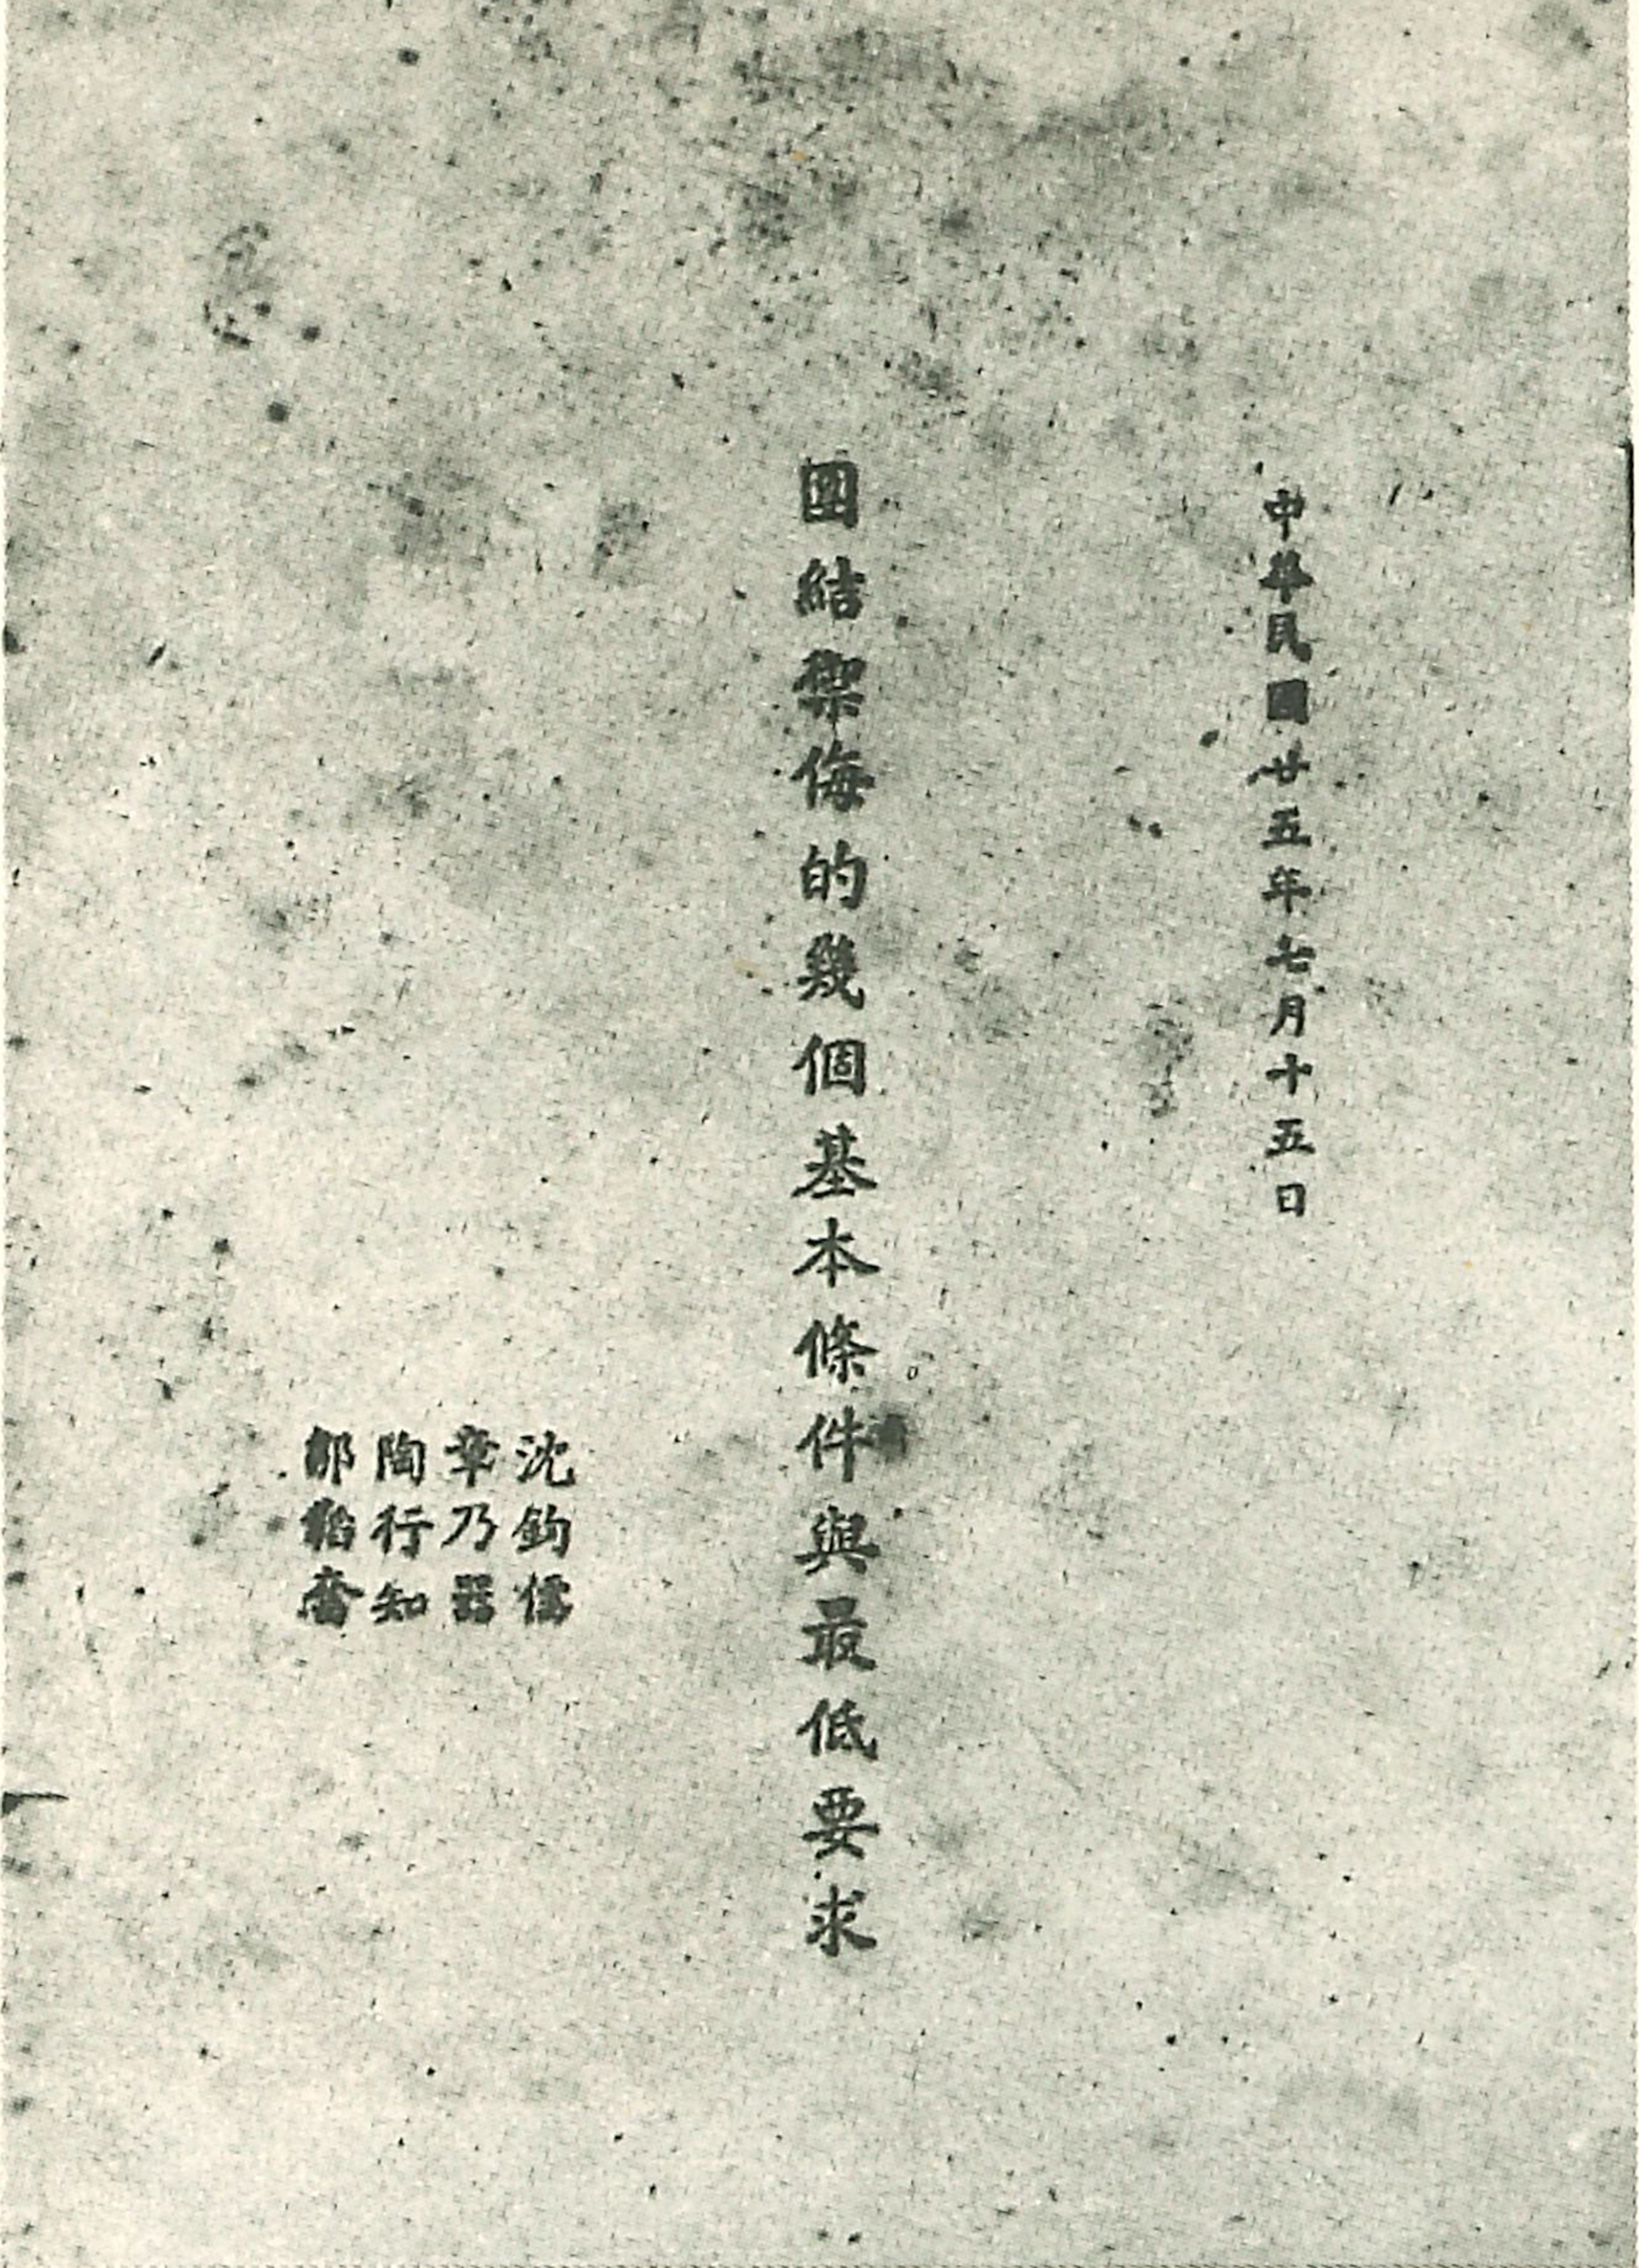 中華民國廿五年七月十五日
團結禦侮的幾個基本條件與最低要求
沈鈞儒
章乃器
陶行知
鄒韜奮